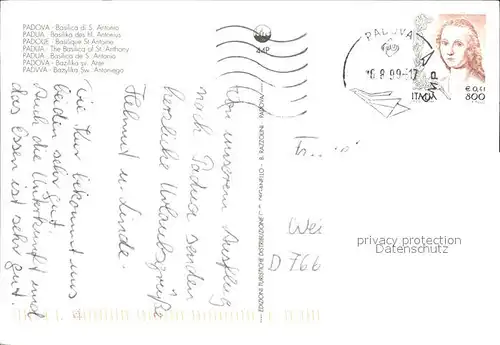 PADOVA - Basilica di S. Antonio
PADUA - Basilika des hl. Antonius
PADOUE - Basilique St Antoine
PADUA - The Basilica of St. Anthony
PADUA - Basilica de S. Antonio
PADOVA - Bazilika sv. Ante
PADWA - Bazylika Sw. Antoniego
44P
PADOVA
6.8.99-17
ITALIA
€ 0,41
800
Von unserem Ausflug
nach Padua senden
herzliche Urlaubsgrüße
Helmut u. Linde.
Die Kur bekommt uns
beiden sehr gut
Auch die Unterkunft und
das Essen ist sehr gut.
EDIZIONI TURISTICHE DISTRIBUZIONE
B. RAZZOLINI PADOVA
Wei
D 766
privacy protection
DanMarkus.com